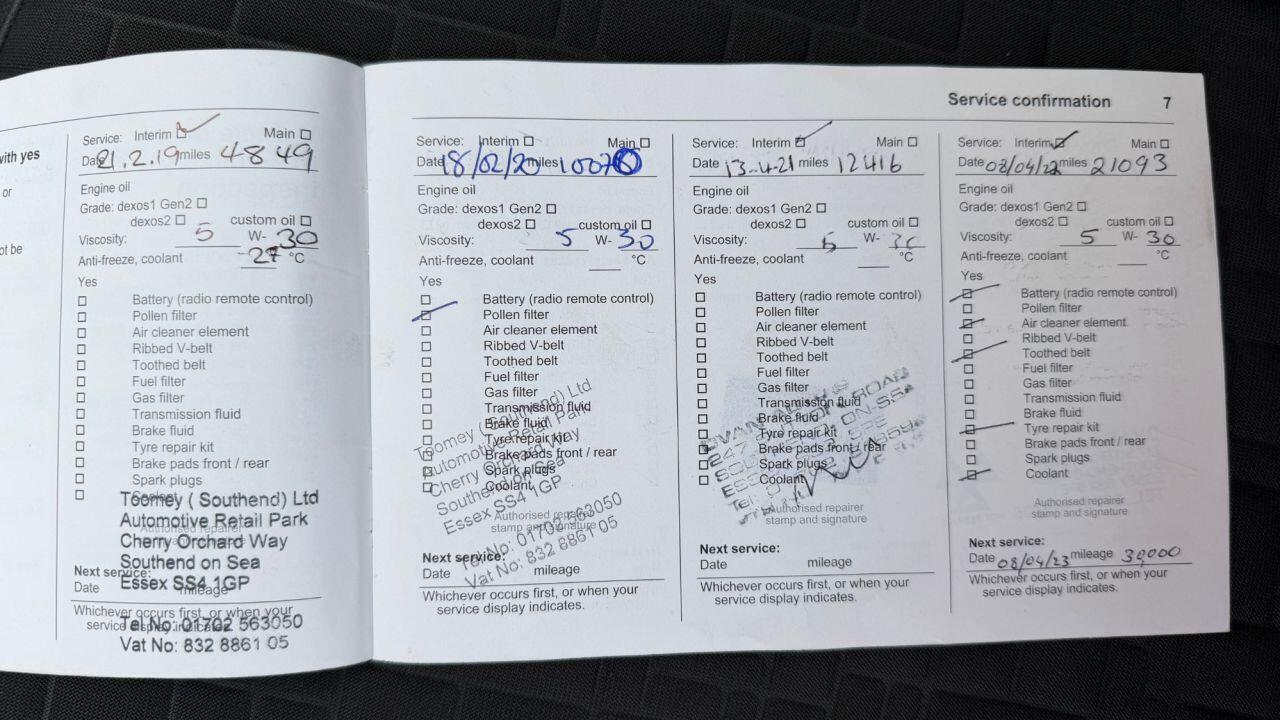 Service confirmation 7
with yes
or
ot be
Service: Interim Main
Date 21.2.19 miles 4849
Engine oil
Grade: dexos1 Gen2
dexos2 custom oil
Viscosity: 5 W- 30
Anti-freeze, coolant 27 °C
Yes
Battery (radio remote control)
Pollen filter
Air cleaner element
Ribbed V-belt
Toothed belt
Fuel filter
Gas filter
Transmission fluid
Brake fluid
Tyre repair kit
Brake pads front / rear
Spark plugs
Toomey ( Southend) Ltd
Automotive Retail Park
Authorised repairer
Cherry Orchard Way
Southend on Sea
Next service:
Essex SS4 1GP
Date mileage
Whichever occurs first, or when your
service display indicates.
Tel No: 01702 563050
Vat No: 832 8861 05
Service: Interim Main
Date 18/02/20 miles
Engine oil
Grade: dexos1 Gen2
dexos2 custom oil
Viscosity: 5 W- 30
Anti-freeze, coolant °C
Yes
Battery (radio remote control)
Pollen filter
Air cleaner element
Ribbed V-belt
Toothed belt
Fuel filter
Gas filter
Transmission fluid
Brake fluid
Tyre repair kit
Brake pads front / rear
Spark plugs
Coolant
Toomey ( Southend) Ltd
Automotive Retail Park
Cherry Orchard Way
Southend on Sea
Essex SS4 1GP
Authorised repairer
stamp and signature
Tel No: 01702 563050
Vat No: 832 8861 05
Next service:
Date mileage
Whichever occurs first, or when your
service display indicates.
Service: Interim Main
Date 13-4-21 miles 12416
Engine oil
Grade: dexos1 Gen2
dexos2 custom oil
Viscosity: 5 W- 30
Anti-freeze, coolant °C
Yes
Battery (radio remote control)
Pollen filter
Air cleaner element
Ribbed V-belt
Toothed belt
Fuel filter
Gas filter
Transmission fluid
Brake fluid
Tyre repair kit
Brake pads front / rear
Spark plugs
Coolant
Authorised repairer
stamp and signature
Next service:
Date mileage
Whichever occurs first, or when your
service display indicates.
Service: Interim Main
Date 08/04/22 miles 21093
Engine oil
Grade: dexos1 Gen2
dexos2 custom oil
Viscosity: 5 W- 30
Anti-freeze, coolant °C
Yes
Battery (radio remote control)
Pollen filter
Air cleaner element
Ribbed V-belt
Toothed belt
Fuel filter
Gas filter
Transmission fluid
Brake fluid
Tyre repair kit
Brake pads front / rear
Spark plugs
Coolant
Authorised repairer
stamp and signature
Next service:
Date 08/04/23 mileage 30,000
Whichever occurs first, or when your
service display indicates.